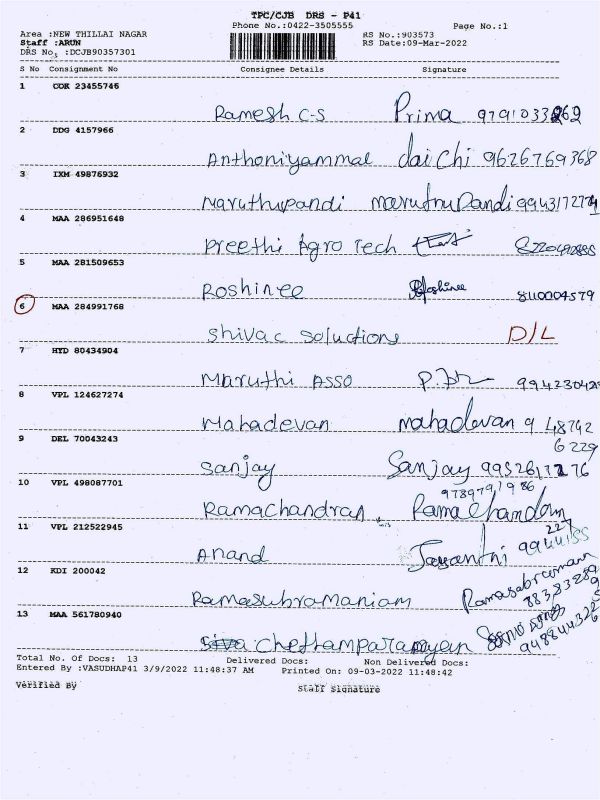 TPC/CJB DRS - P41
Phone No.:0422-3505555 Page No.:1
Area :NEW THILLAI NAGAR RS No.:903573
Staff :ARUN RS Date:09-Mar-2022
DRS No. :DCJB90357301
S No Consignment No Consignee Details Signature
1 COR 23455746
Ramesh C-S Prima
2 DDG 4157966
Anthoniyammal daichi 9626769368
3 IXM 49876932
Maruthupandi MaruthuPandi
4 MAA 286951648
Preethi Agro Tech
5 MAA 281509653
Roshinee Roshinee 8110004579
6 MAA 284991768
Shivac Soluctions D/L
7 HYD 80434904
Maruthi Asso
8 VPL 124627274
Mahadevan mahadevan 9 48742
9 DEL 70043243 6229
Sanjay Sanjay
10 VPL 498087701
Ramachandran Ramachandran
11 VPL 212522945
Anand Jayanthi
12 KDI 200042
Ramasubramaniam
13 MAA 561780940
Total No. Of Docs: 13 Delivered Docs: Non Delivered Docs:
Entered By :VASUDHAP41 3/9/2022 11:48:37 AM Printed On: 09-03-2022 11:48:42
Verified By Staff Signature